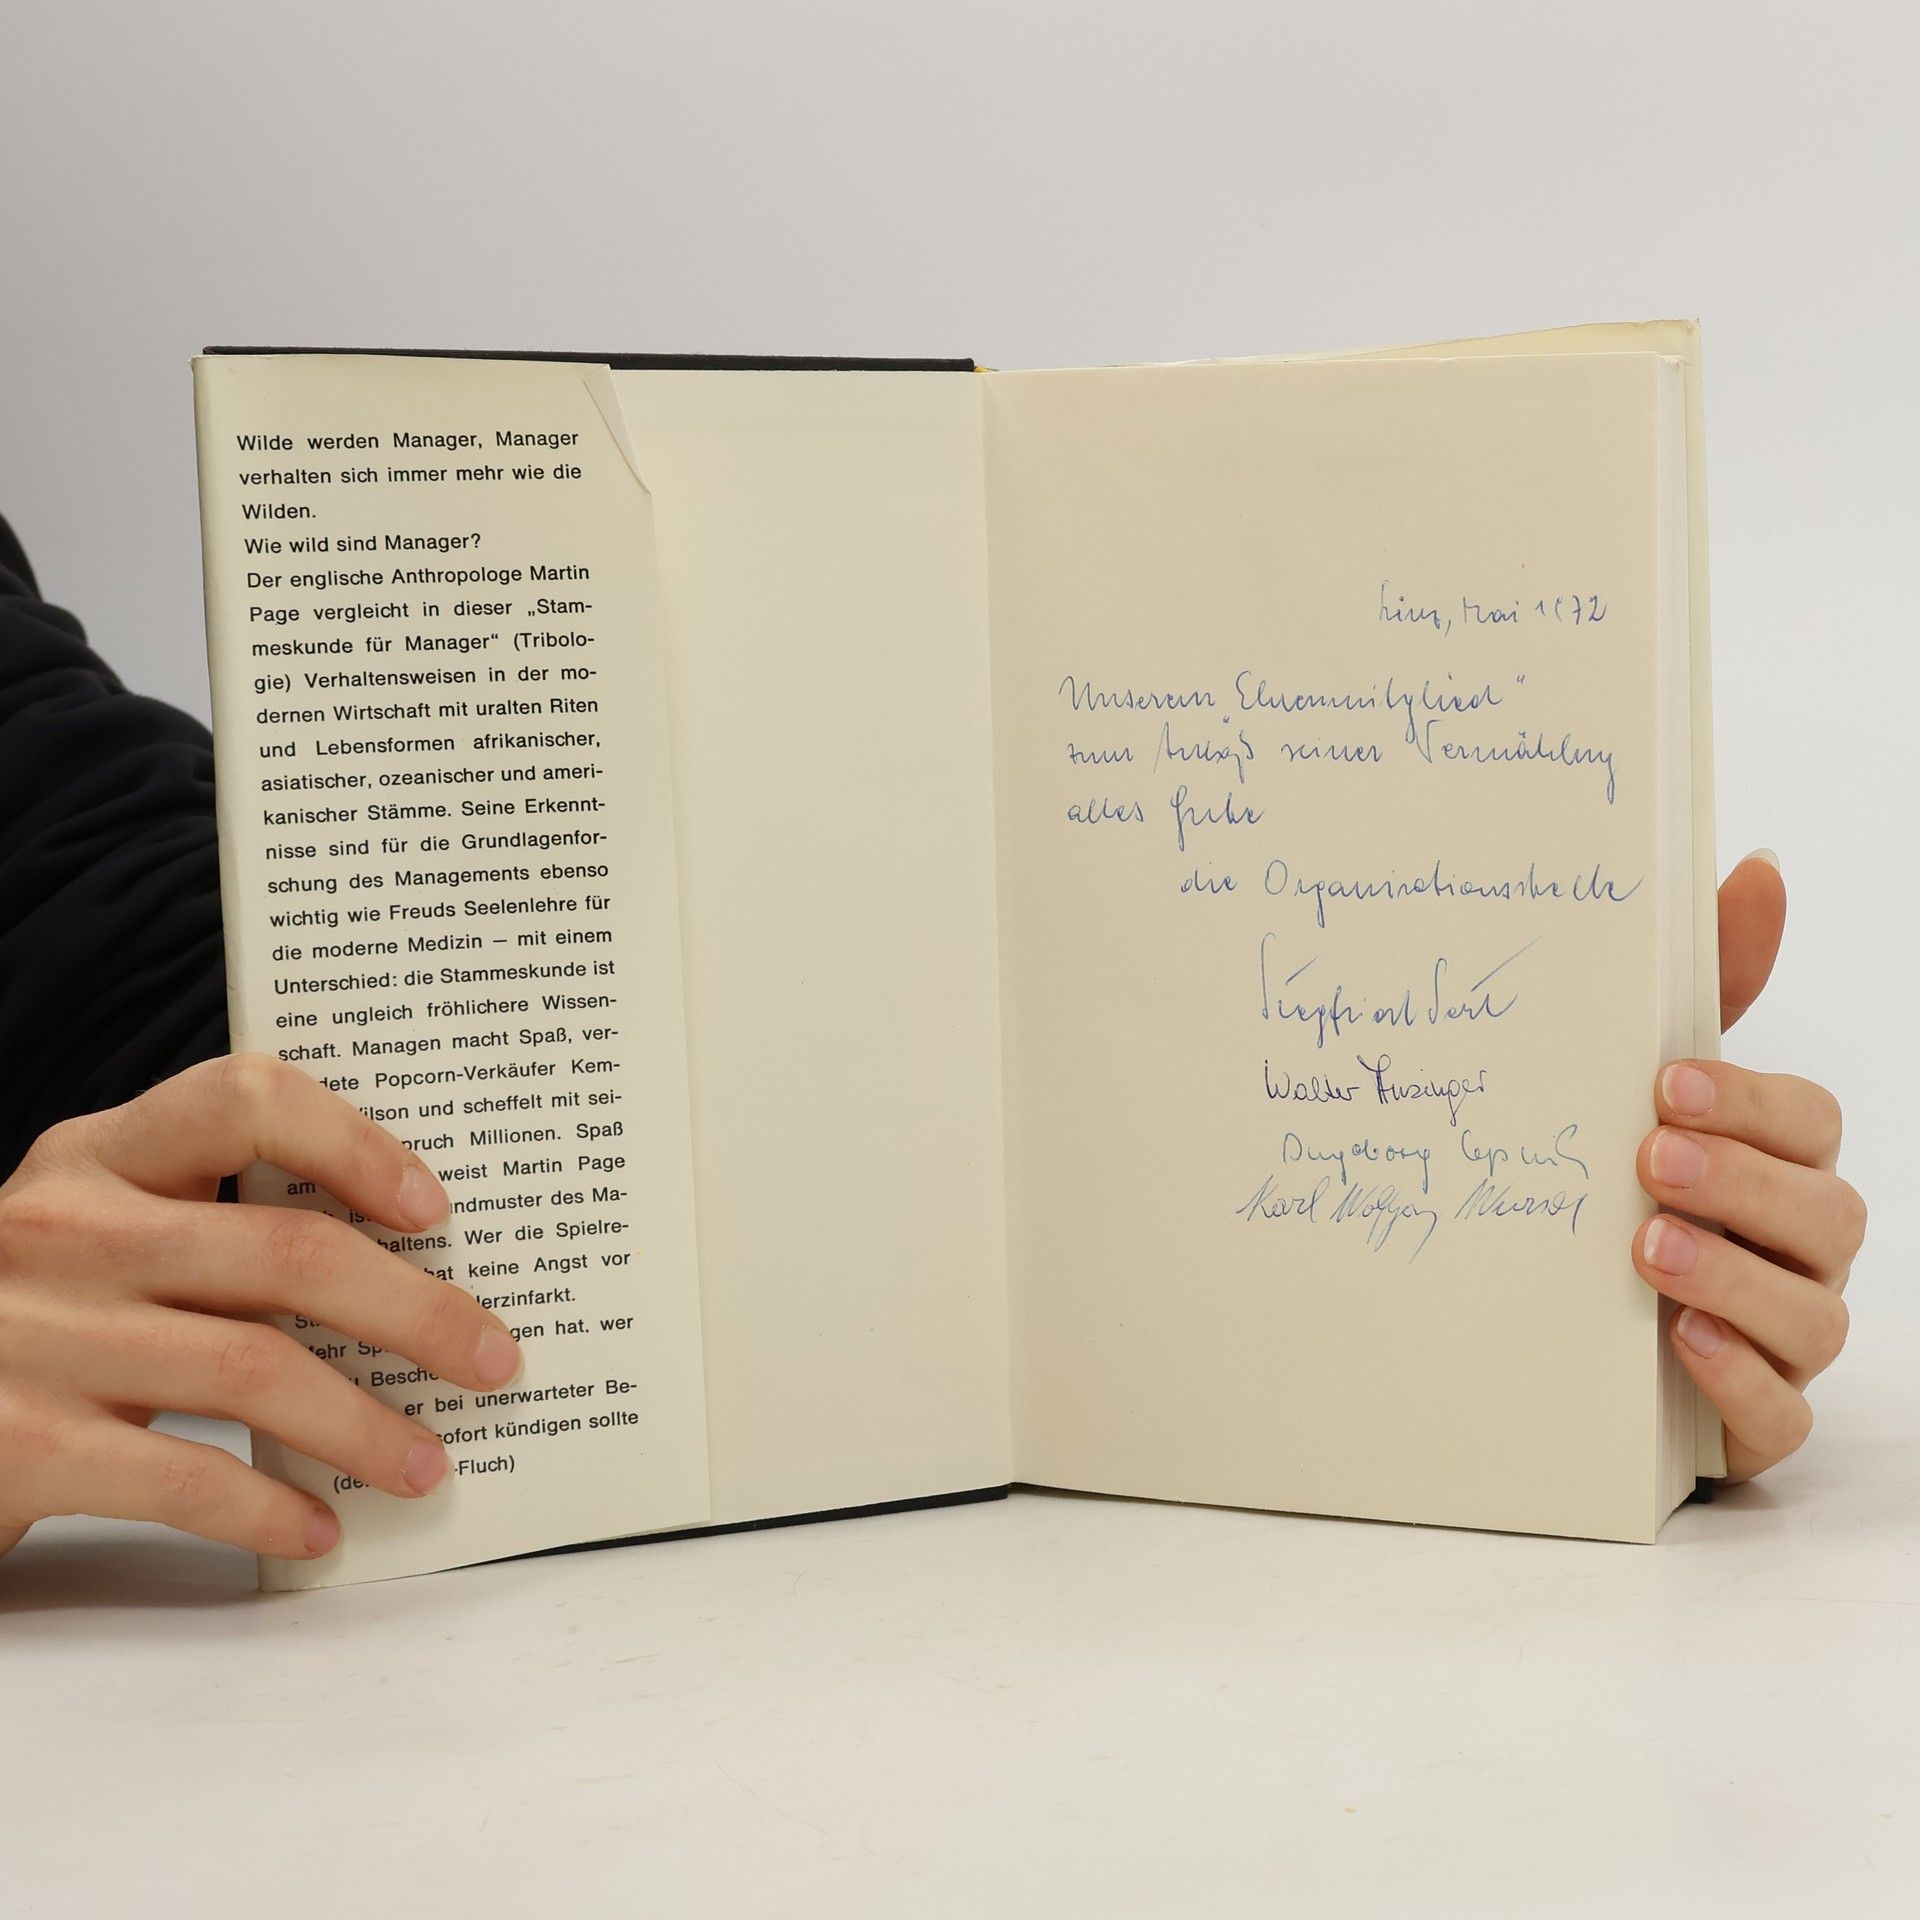 Wilde werden Manager, Manager
verhalten sich immer mehr wie die
Wilden.
Wie wild sind Manager?
Der englische Anthropologe Martin
Page vergleicht in dieser „Stam-
meskunde für Manager“ (Tribolo-
gie) Verhaltensweisen in der mo-
dernen Wirtschaft mit uralten Riten
und Lebensformen afrikanischer,
asiatischer, ozeanischer und ameri-
kanischer Stämme. Seine Erkennt-
nisse sind für die Grundlagenfor-
schung des Managements ebenso
wichtig wie Freuds Seelenlehre für
die moderne Medizin – mit einem
Unterschied: die Stammeskunde ist
eine ungleich fröhlichere Wissen-
schaft. Managen macht Spaß, ver-
Popcorn-Verkäufer Kem-
und scheffelt mit sei-
Millionen. Spaß
am weist Martin Page
des Ma-
Wer die Spielre-
keine Angst vor
hat, wer
er bei unerwarteter Be-
sofort kündigen sollte
-Fluch)
Linz, Mai 1972
Unserem "Ehrenmitglied"
zum Anlaß seiner Vermählung
alles Gute
die Organisationsstelle
Siegfried
Walter
Ingeborg
Karl Wolfgang